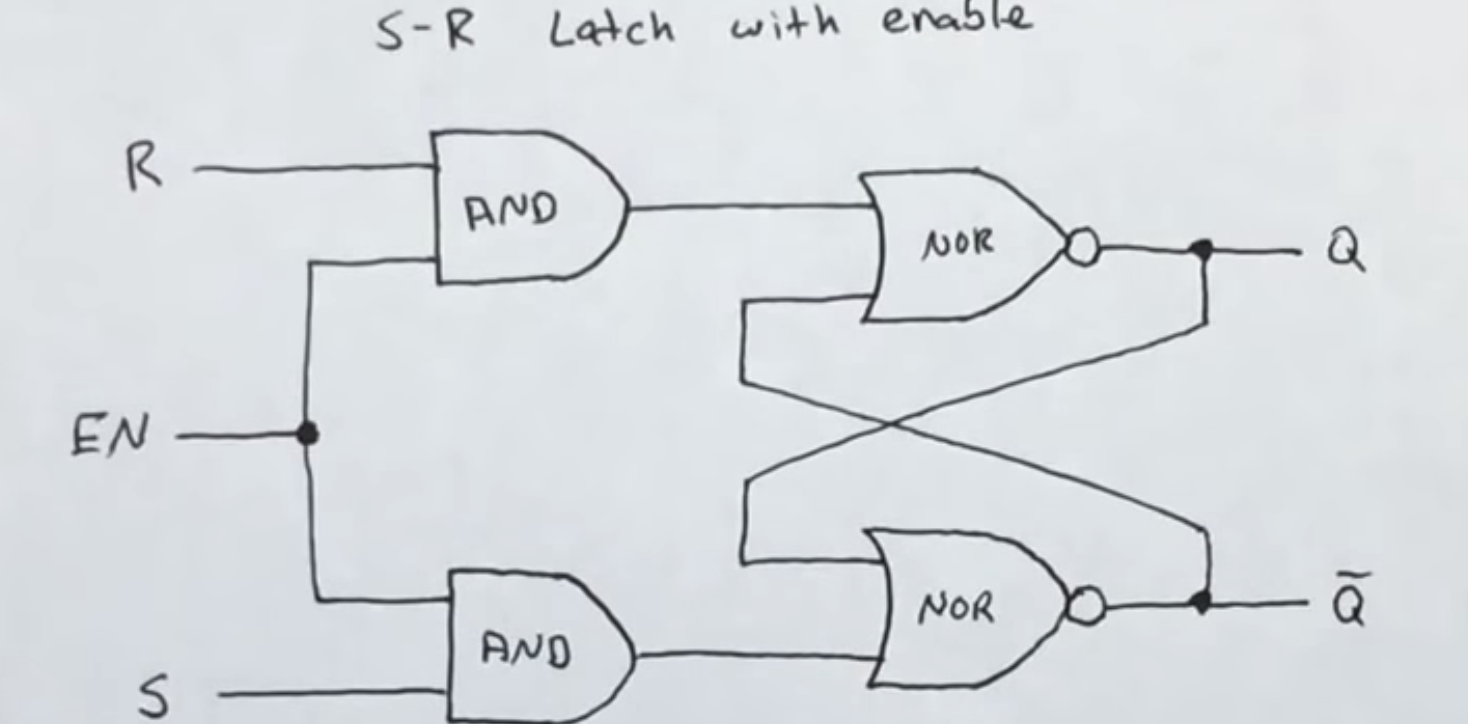 S-R Latch with enable
R
AND
NOR
Q
EN
NOR
Q̅
AND
S